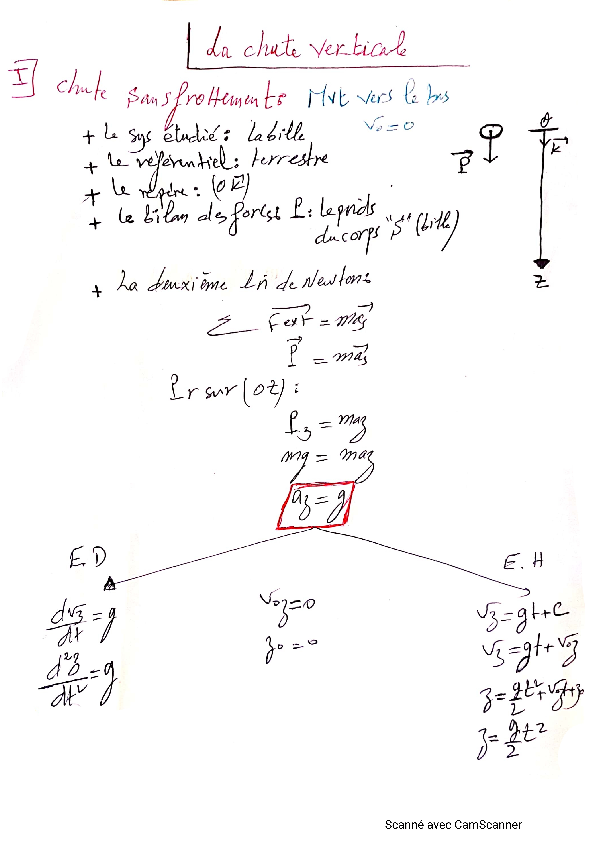 La chute verticale
I] chute sans frottements Mvt vers le bas
v₀ = 0
+ le sys étudié : la bille
+ le référentiel : terrestre
+ le repère : (O k⃗)
+ le bilan des forces P : le poids
du corps "S" (bille)
O
k⃗
P⃗
Z
+ La deuxième loi de Newtons
Σ F⃗ext = ma⃗s
P⃗ = ma⃗s
Pr sur (OZ) :
Pz = maz
mg = maz
az = g
E D
dvz/dt = g
d²z/dt² = g
v₀z = 0
z₀ = 0
E. H
vz = gt + c
vz = gt + v₀z
z = g/2 t² + v₀zt + z₀
z = g/2 t²
Scanné avec CamScanner